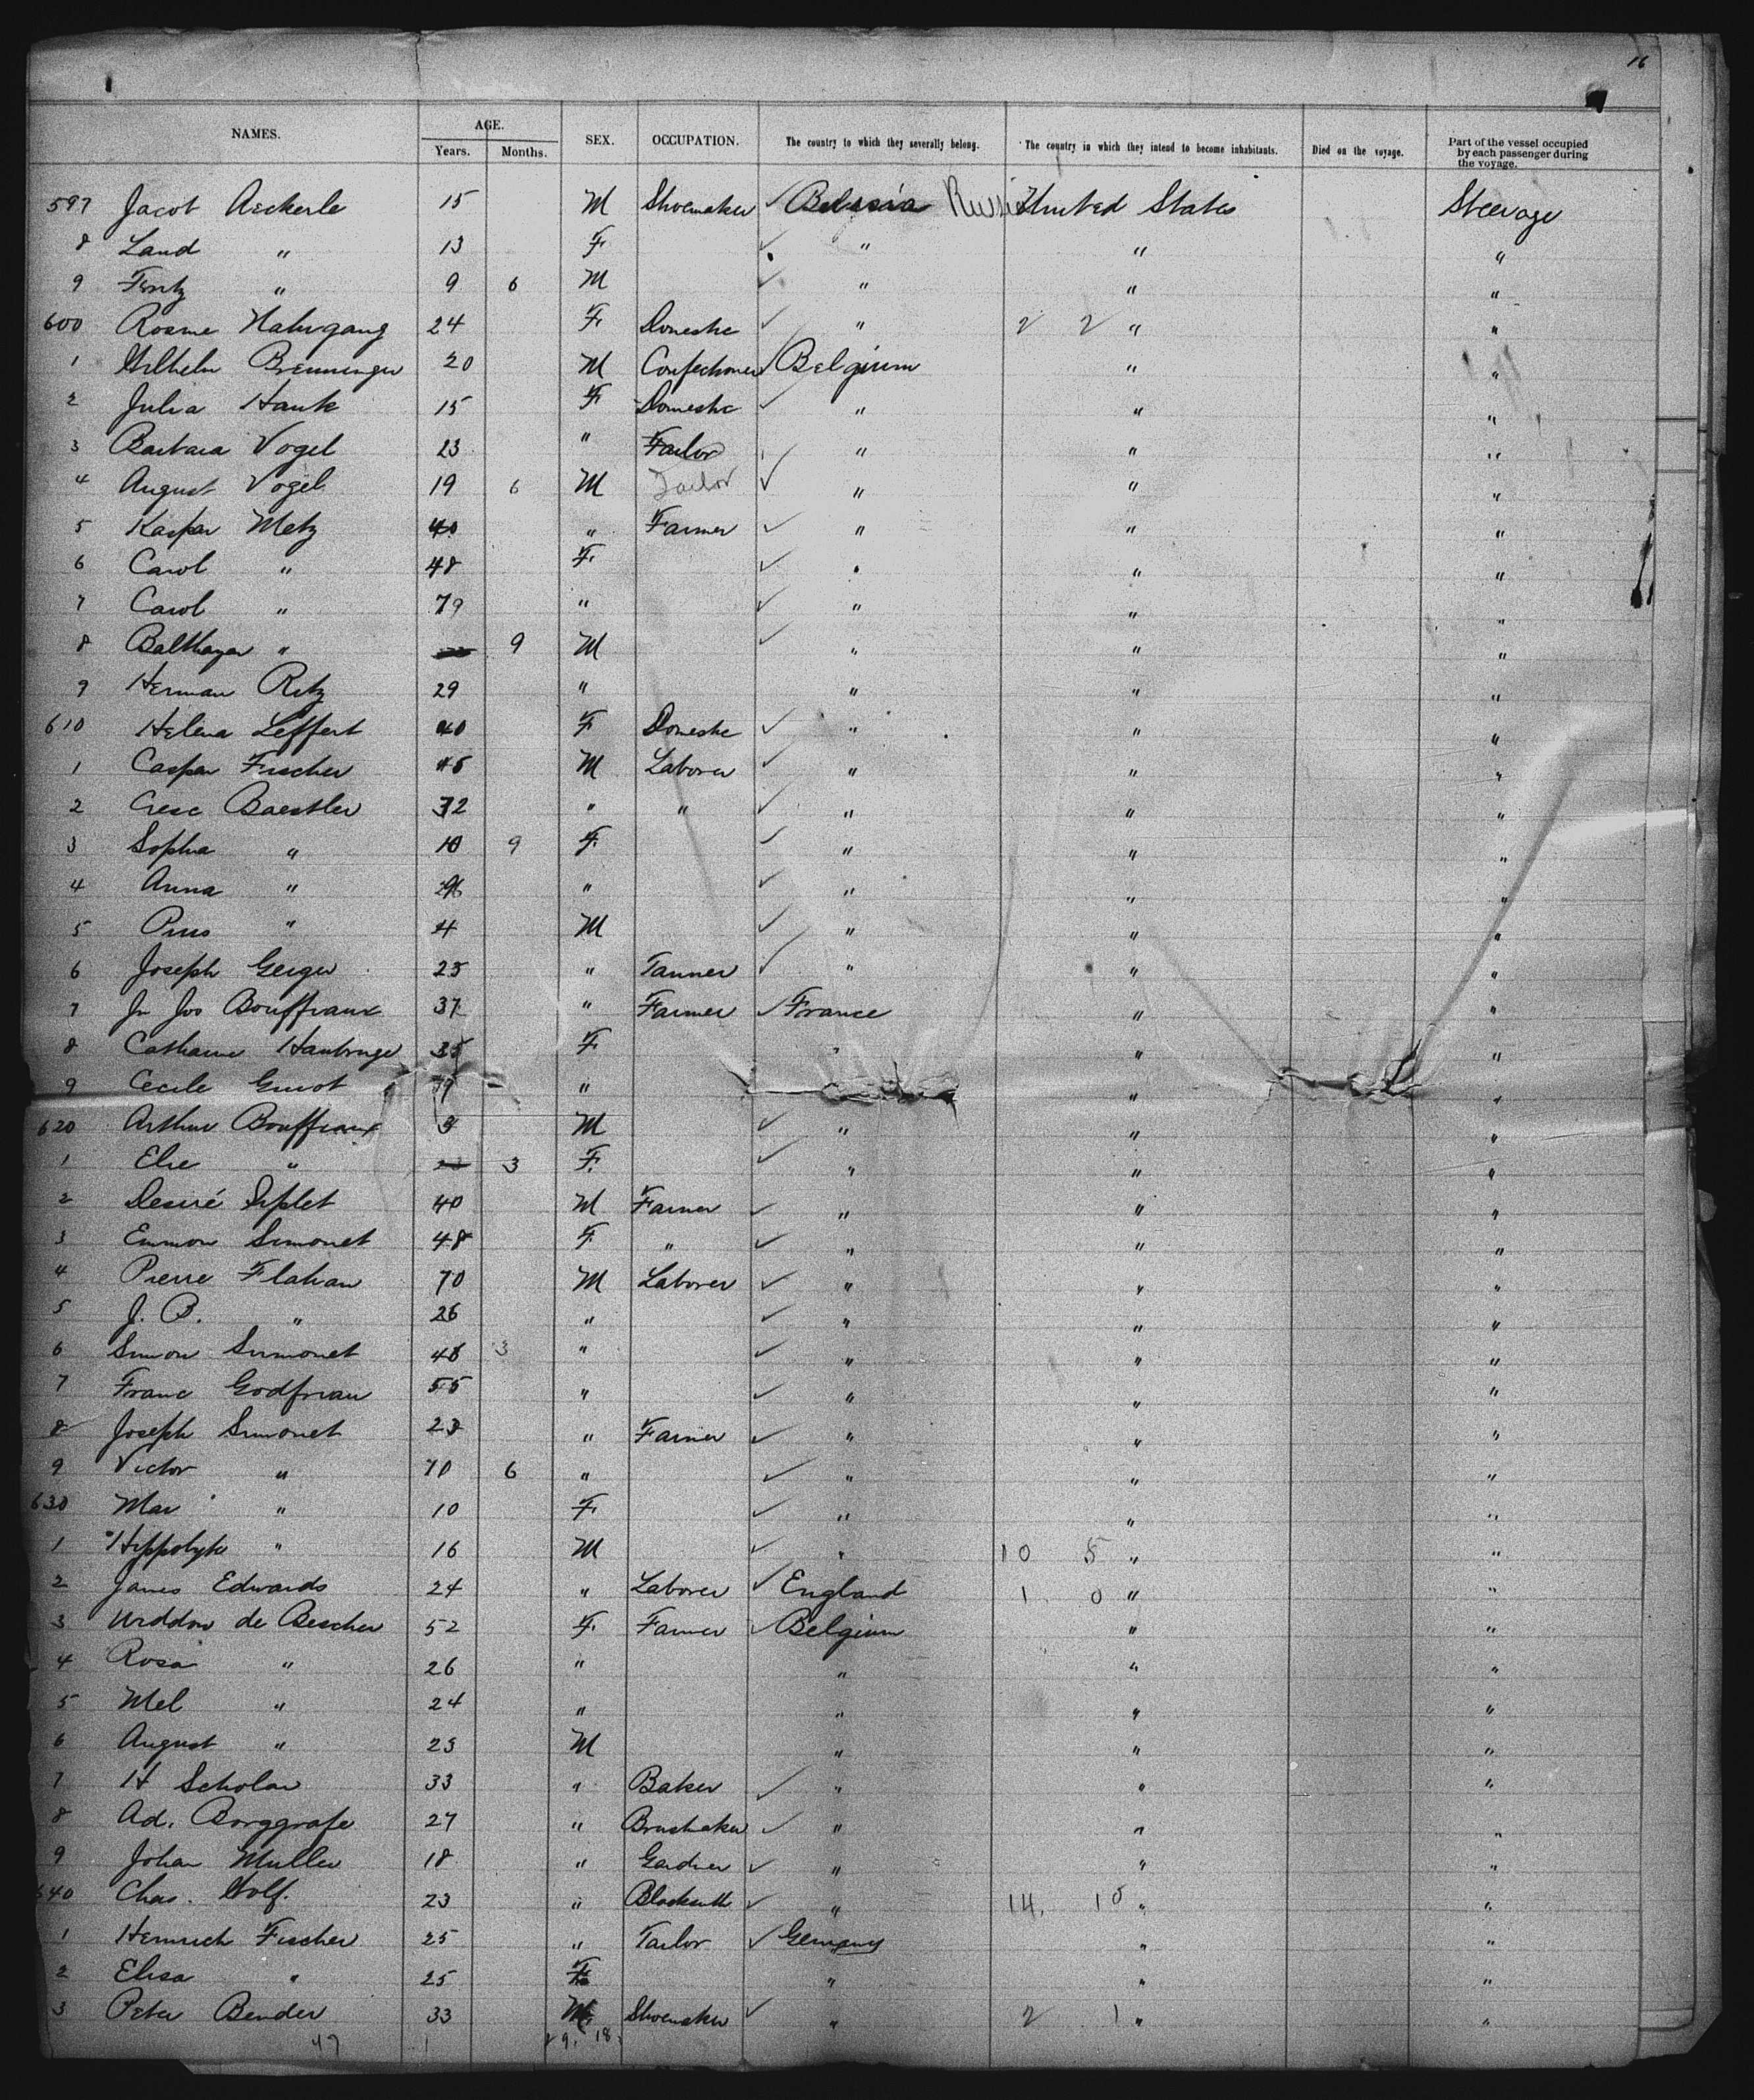 16
NAMES. AGE. SEX. OCCUPATION. The country to which they severally belong. The country in which they intend to become inhabitants. Died on the voyage. Part of the vessel occupied by each passenger during the voyage.
Years. Months.
597 Jacob Aeckerle 15 M Shoemaker ✓ Russia United States Steerage
8 Land " 13 F ✓ " " "
9 Fritz " 9 6 M ✓ " " "
600 Rosine 24 F Domestic ✓ " 2 2 " "
1 Wilhelm Brenninger 20 M Confectioner ✓ Belgium " "
2 Julia Hank 15 F Domestic ✓ " " "
3 Barbara Vogel 23 " Tailor " " "
4 August Vogel 19 6 M Tailor ✓ " " "
5 Kaspar Metz 40 " Farmer ✓ " " "
6 Carol " 48 F ✓ " " "
7 Carol " 79 " ✓ " " "
8 Balthazar " 9 M ✓ " " "
9 Herman Ritz 29 " " " "
610 Helena Leffert 40 F Domestic ✓ " " "
1 Caspar Fischer 45 M Laborer ✓ " " "
2 Cresc Baestler 32 " " ✓ " " "
3 Sophia " 10 9 F ✓ " " "
4 Anna " " ✓ " " "
5 Pius " 4 M ✓ " " "
6 Joseph Geiger 25 " Tanner ✓ " " "
7 Jn Jos Bouffiaux 37 " Farmer ✓ France " "
8 Catharine 35 F " " "
9 Cecile Guiot " " "
620 Arthur Bouffiaux 3 M ✓ " " "
1 Elie " 3 F. ✓ " " "
2 Desiré Siplet 40 M Farmer ✓ " " "
3 Simonet 48 F " ✓ " " "
4 Pierre Flahau 70 M Laborer ✓ " " "
5 J. B. " 26 " ✓ " " "
6 Simon Simonet 48 3 " ✓ " " "
7 Franc Godfriau 55 " ✓ " " "
8 Joseph Simonet 23 " Farmer ✓ " " "
9 Victor " 10 6 " ✓ " " "
630 Mar " 10 F. ✓ " " "
1 Hippolyte " 16 M ✓ " 10 5 " "
2 James Edwards 24 " Laborer ✓ England 1 0 " "
3 de Bescher 52 F. Farmer ✓ Belgium " "
4 Rosa " 26 " " " "
5 Mel " 24 " " " "
6 August " 23 M " " "
7 H Scholar 33 " Baker ✓ " " "
8 Ad. Borggrafe 27 " Brushaker ✓ " " "
9 Johan Muller 18 " Gardner ✓ " " "
640 Chas. Wolf. 23 " Blacksmith ✓ " 14. 10 " "
1 Heinrich Fischer 25 " Tailor ✓ Germany " "
2 Elisa " 25 F " " "
3 Peter Bender 33 M. Shoemaker ✓ " 2 1 " "
47 1 29. 18.